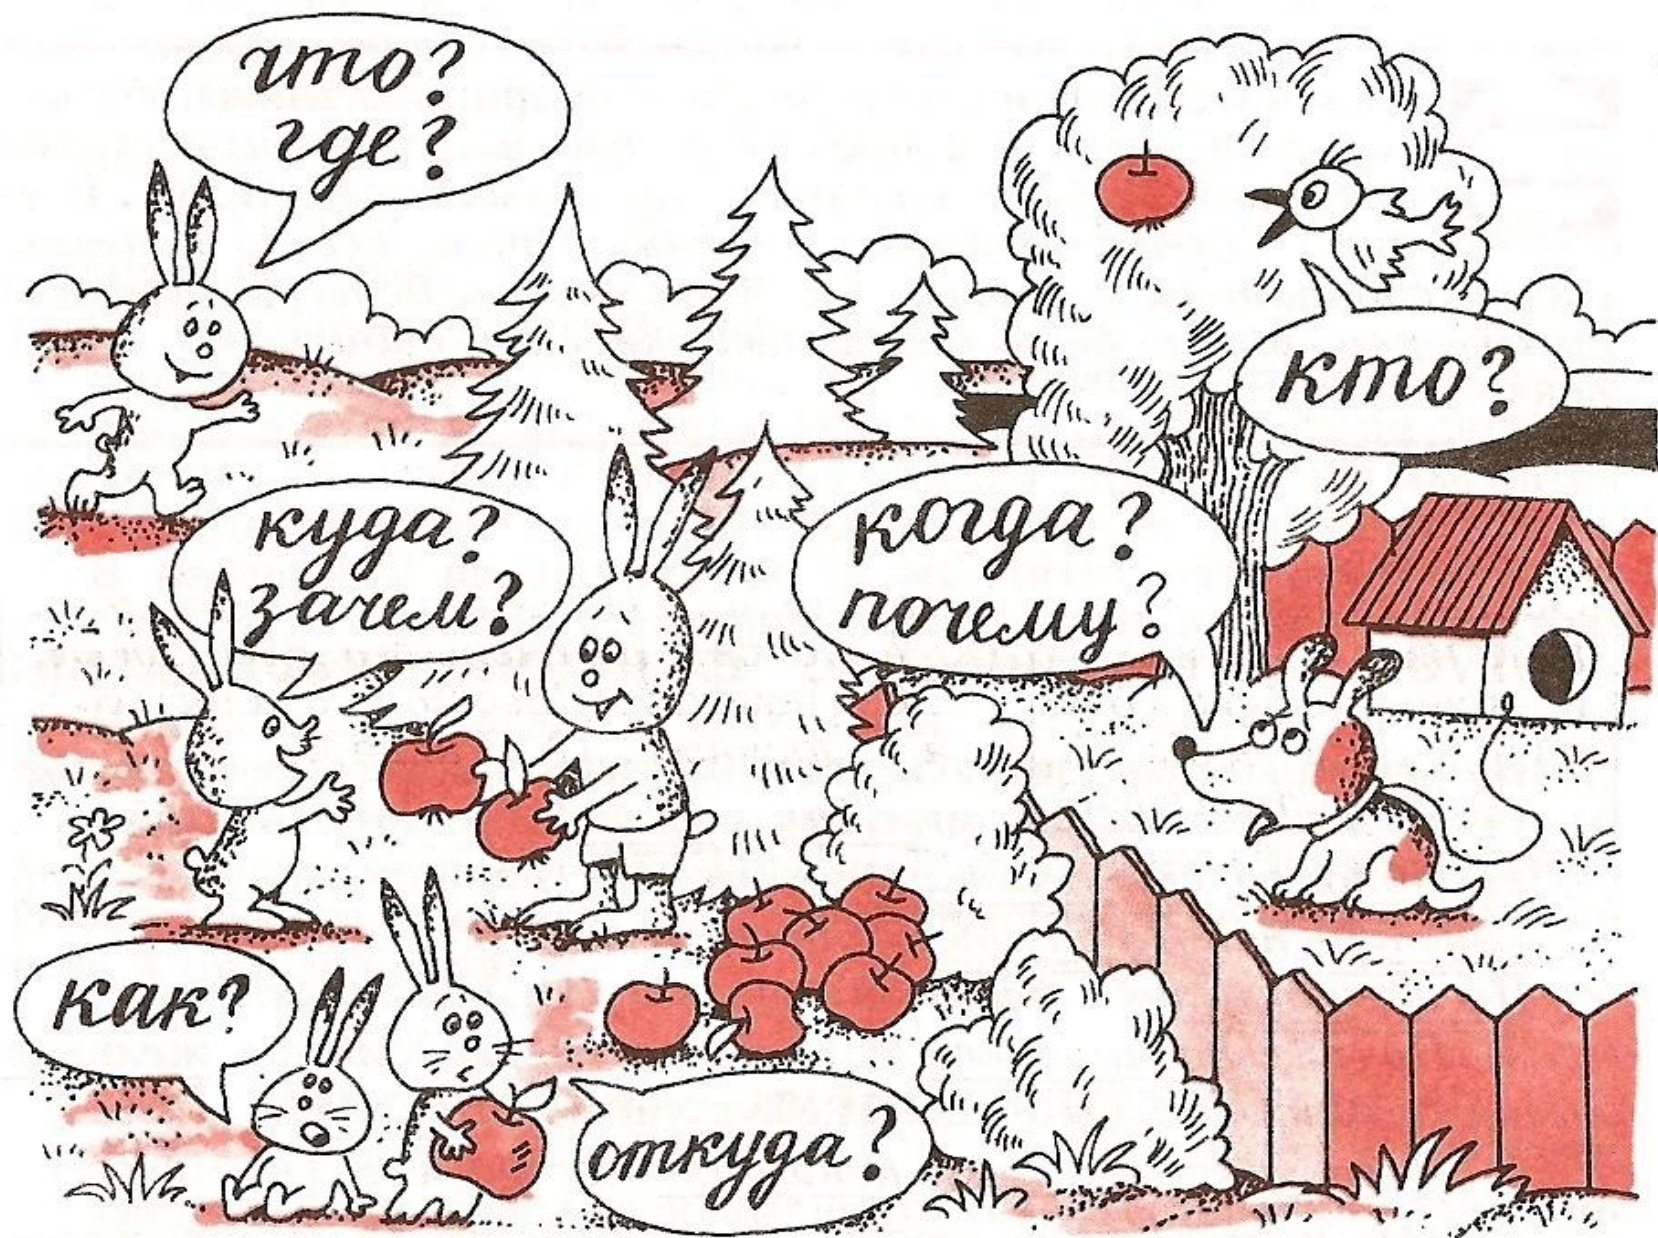 что?
где?
кто?
куда?
зачем?
когда?
почему?
как?
откуда?